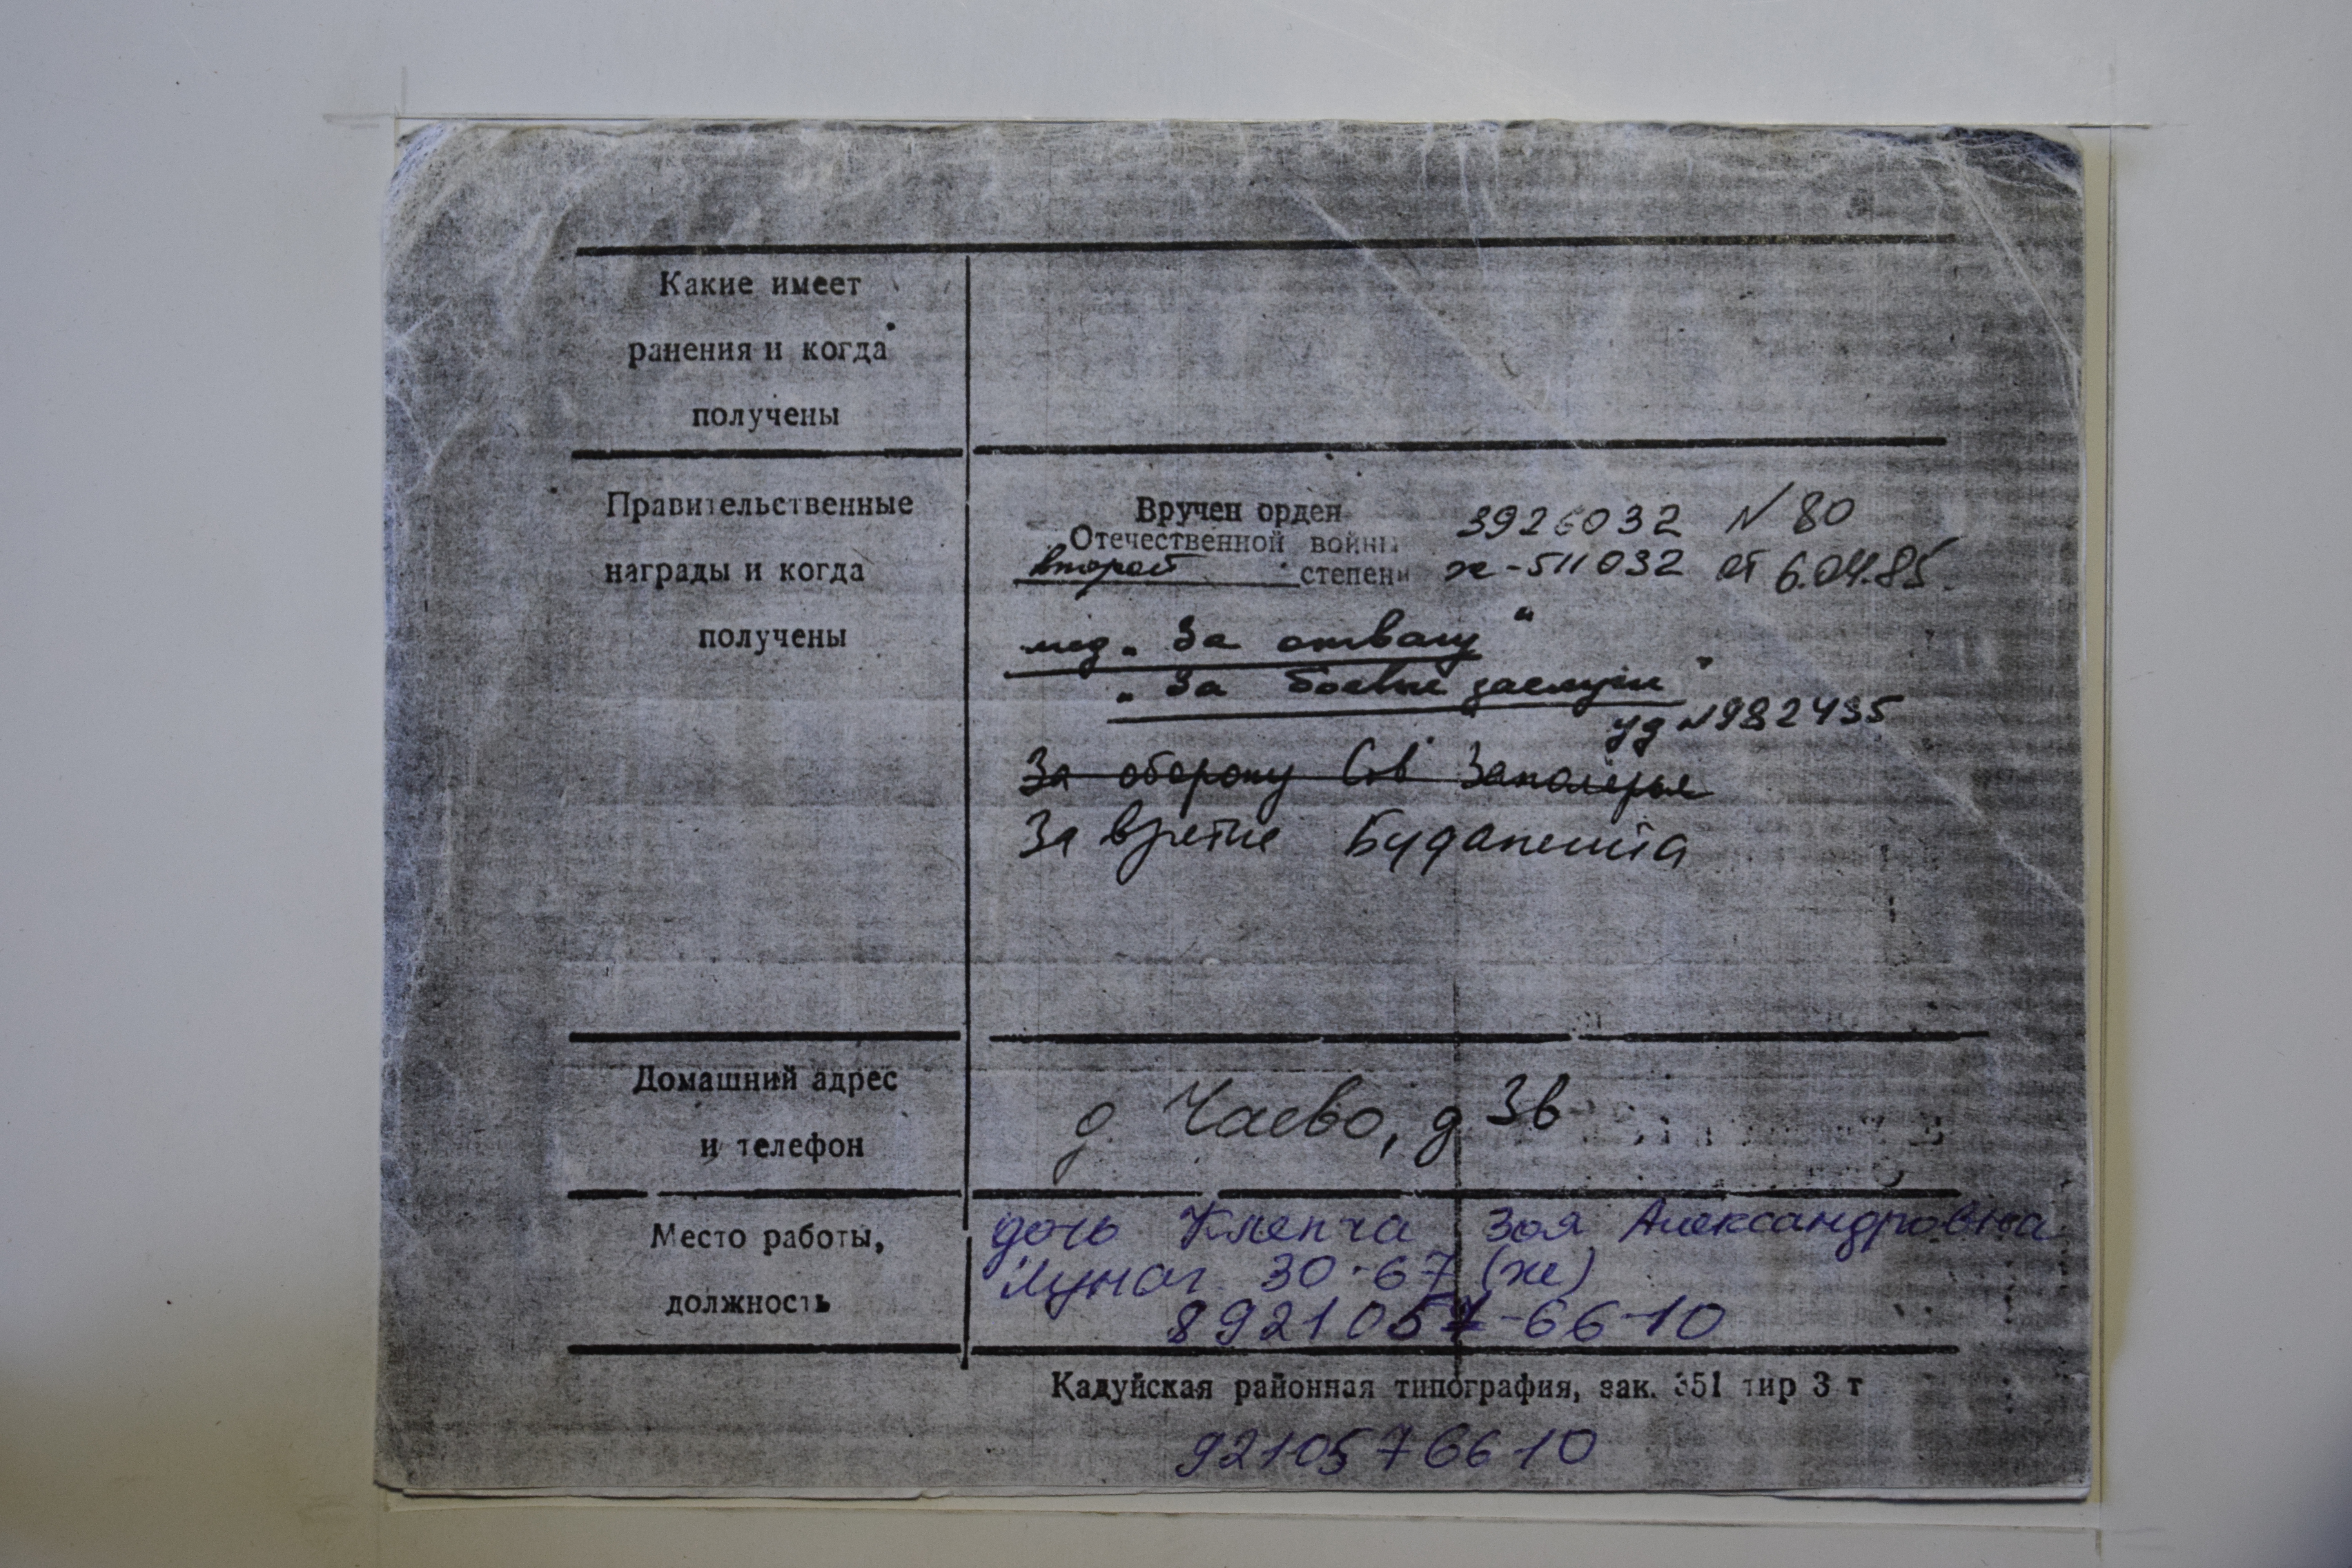 Какие имеет
ранения и когда
получены
Правительственные
награды и когда
получены
Вручен орден
Отечественной войны
второй степени
3926032 N 80
ж-511032 от 6.04.85.
мед. „За отвагу“
„За боевые заслуги“
уд N982435
За оборону Сов Заполярья
За взятие Будапешта
Домашний адрес
и телефон
д. Чаево, д 3в
Место работы,
должность
дочь Зоя Александровна
30-67 (ж)
8921057-66-10
Кадуйская районная типография, зак. 351 тир 3 т
9210576610